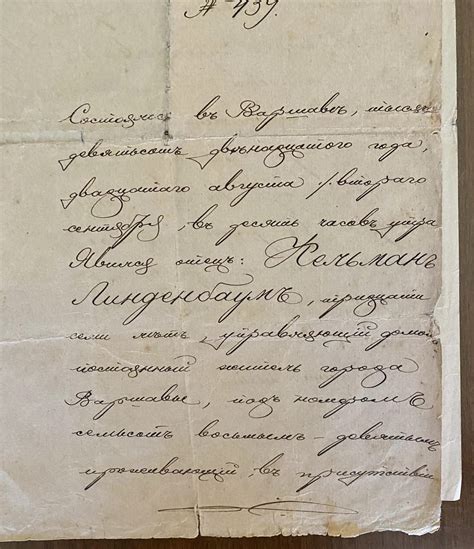 № 439.
Состоялось въ Варшавѣ, тысяча
девятьсотъ двѣнадцатого года,
двадцатаго августа /:второго
сентября, въ десять часовъ утра
Явился отецъ: Кельманъ
Линденбаумъ, тридцати
семи лѣтъ, управляющій домомъ
постоянный житель города
Варшавы, подъ номеромъ
семьсотъ восьмымъ-девятымъ
проживающій, въ присутствіи